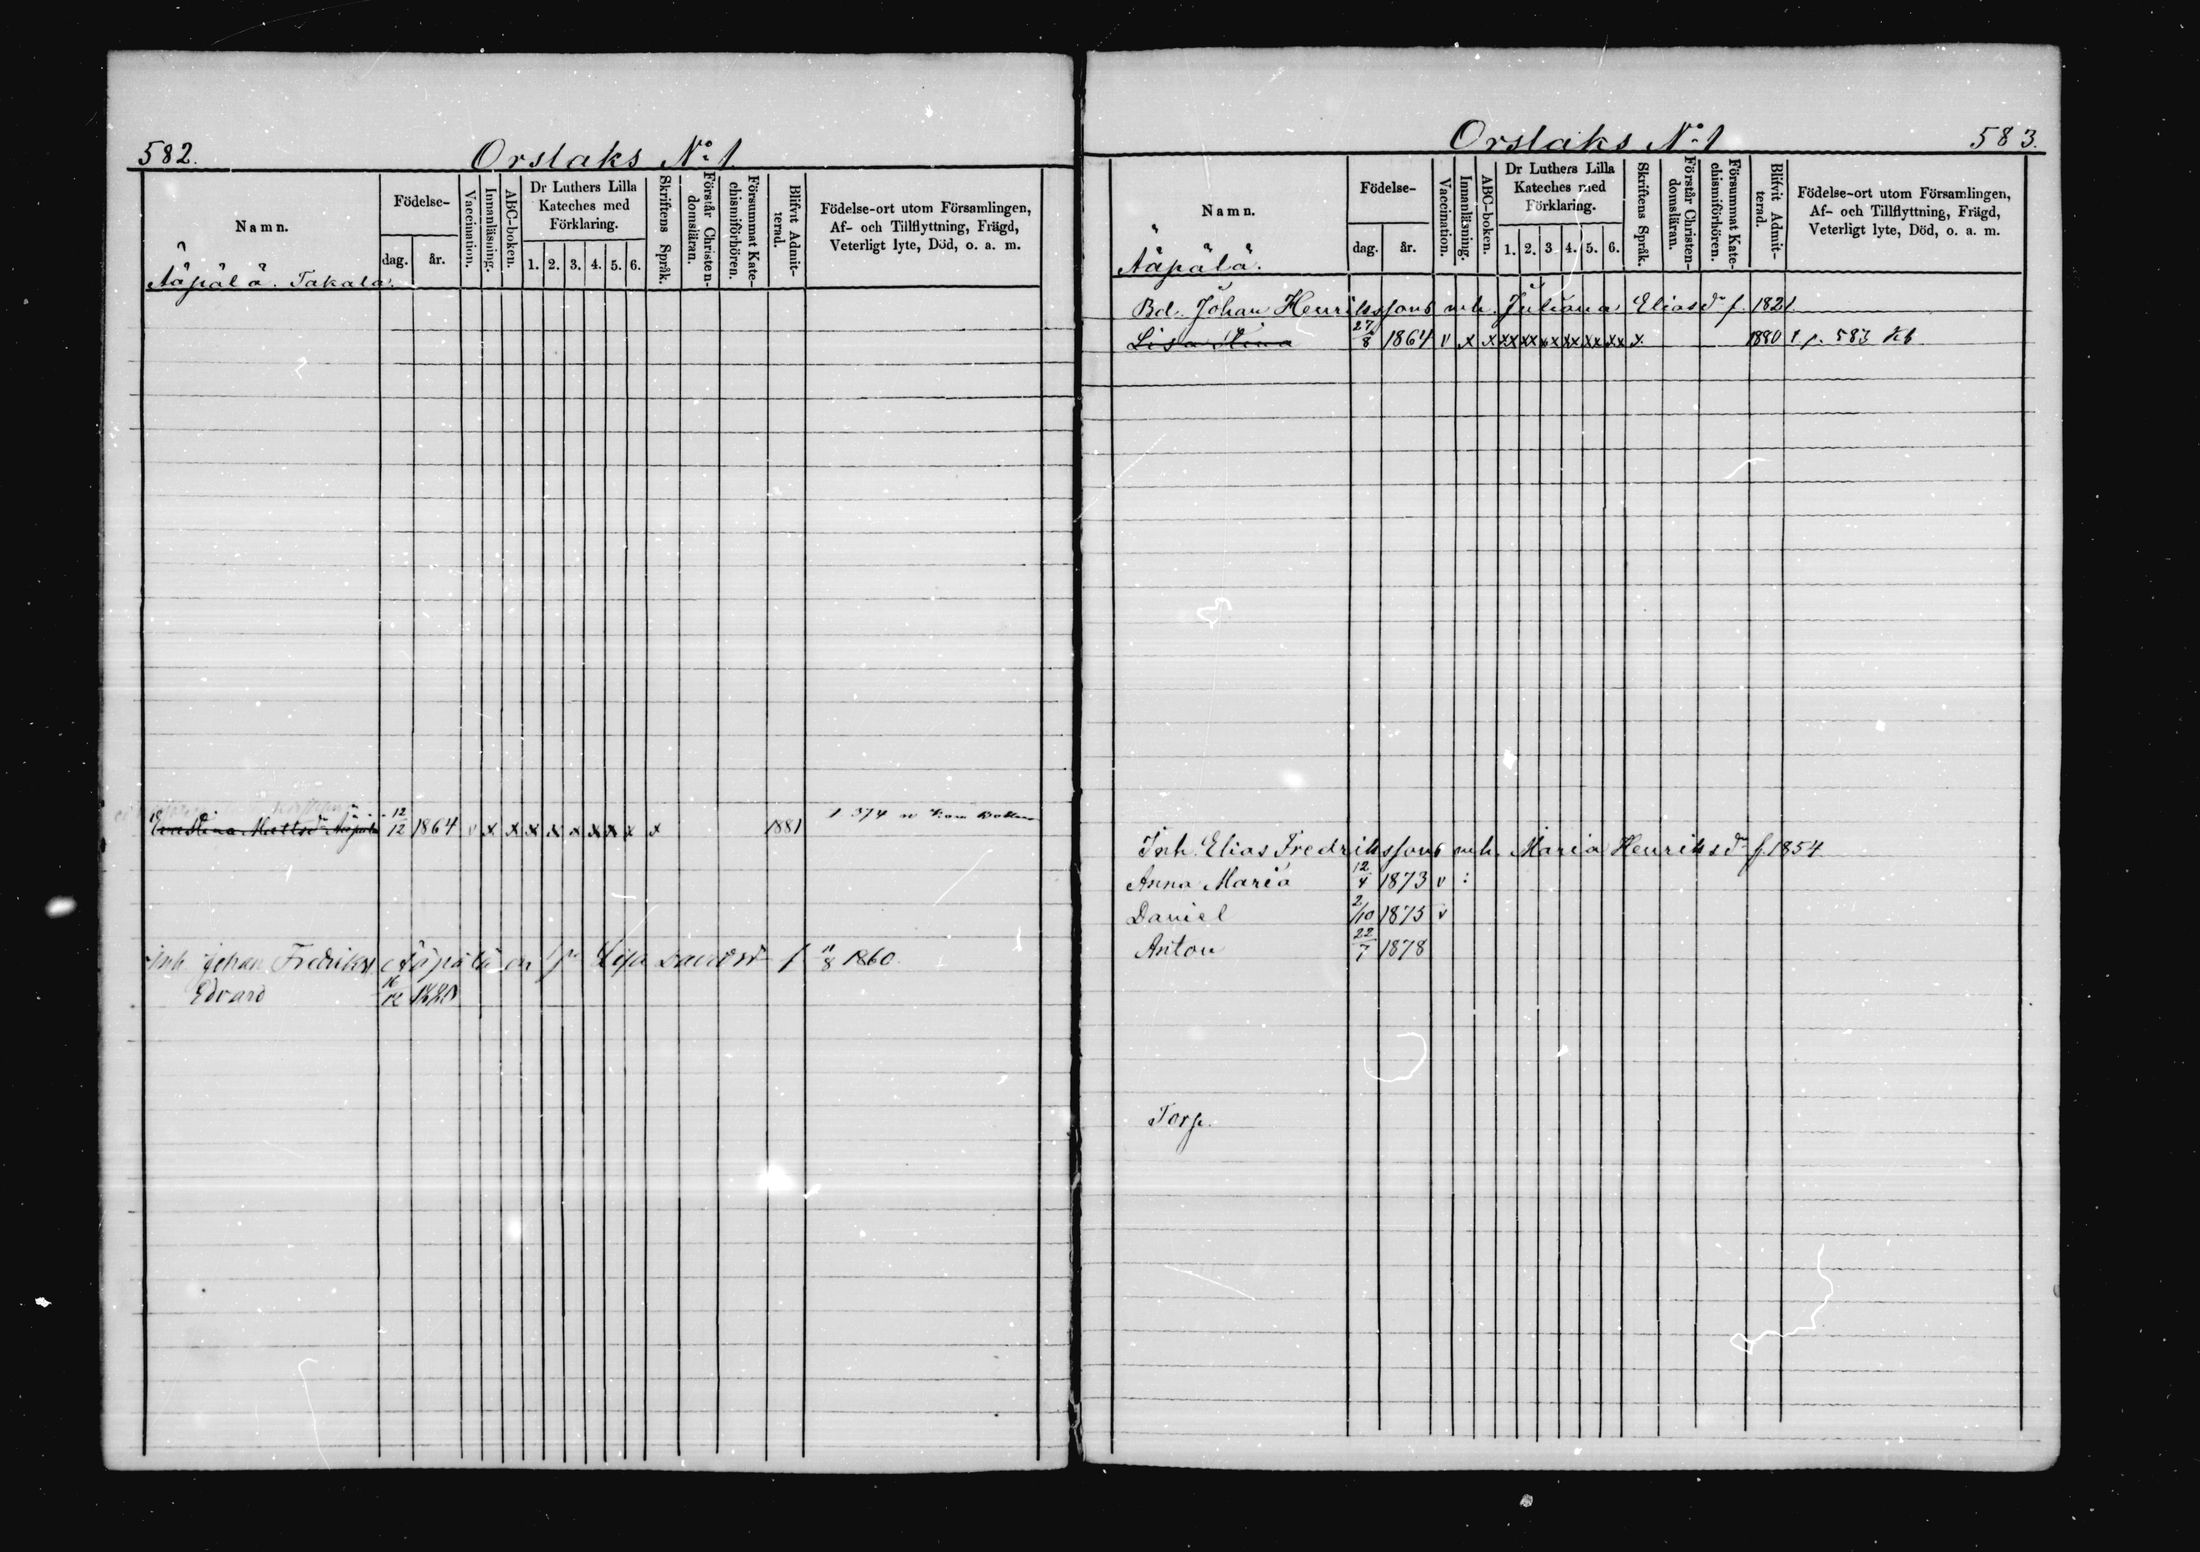 582.
Orslaks No 1
Namn.
Födelse-
dag.
år.
Vaccination.
Innanläsning.
ABC-boken.
Dr Luthers Lilla
Kateches med
Förklaring.
1. 2. 3. 4. 5. 6.
Skriftens Språk.
Förstår Christen-
domsläran.
Försummat Kate-
chismiförhören.
Blifvit Admit-
terad.
Födelse-ort utom Församlingen,
Af- och Tillflyttning, Frägd,
Veterligt lyte, Död, o. a. m.
Ääpälä. Takala.
Eva Stina Mattsdr Ääpälä 12/12 1864 v x x x x x x x x x 1881 374
Inh. Johan Fredriks Ääpälä Lisa f 11/8 1860.
Edvard 16/12 1880
Orslaks No 1
583.
Namn.
Födelse-
dag.
år.
Vaccination.
Innanläsning.
ABC-boken.
Dr Luthers Lilla
Kateches med
Förklaring.
1. 2. 3 4. 5. 6.
Skriftens Språk.
Förstår Christen-
domsläran.
Försummat Kate-
chismiförhören.
Blifvit Admit-
terad.
Födelse-ort utom Församlingen,
Af- och Tillflyttning, Frägd,
Veterligt lyte, Död, o. a. m.
Ääpälä.
Bd. Johan Henrikssons enk. Juliana Eliasdr f. 1821.
Lisa Stina 27/8 1864 v x x xx xx xx xx xx xx x 1880 p. 583 Kb
Inh. Elias Fredrikssons enk. Maria Henriksdr f. 1854
Anna Maria 12/4 1873 v :
Daniel 2/10 1875 v
Anton 22/7 1878
Torp.